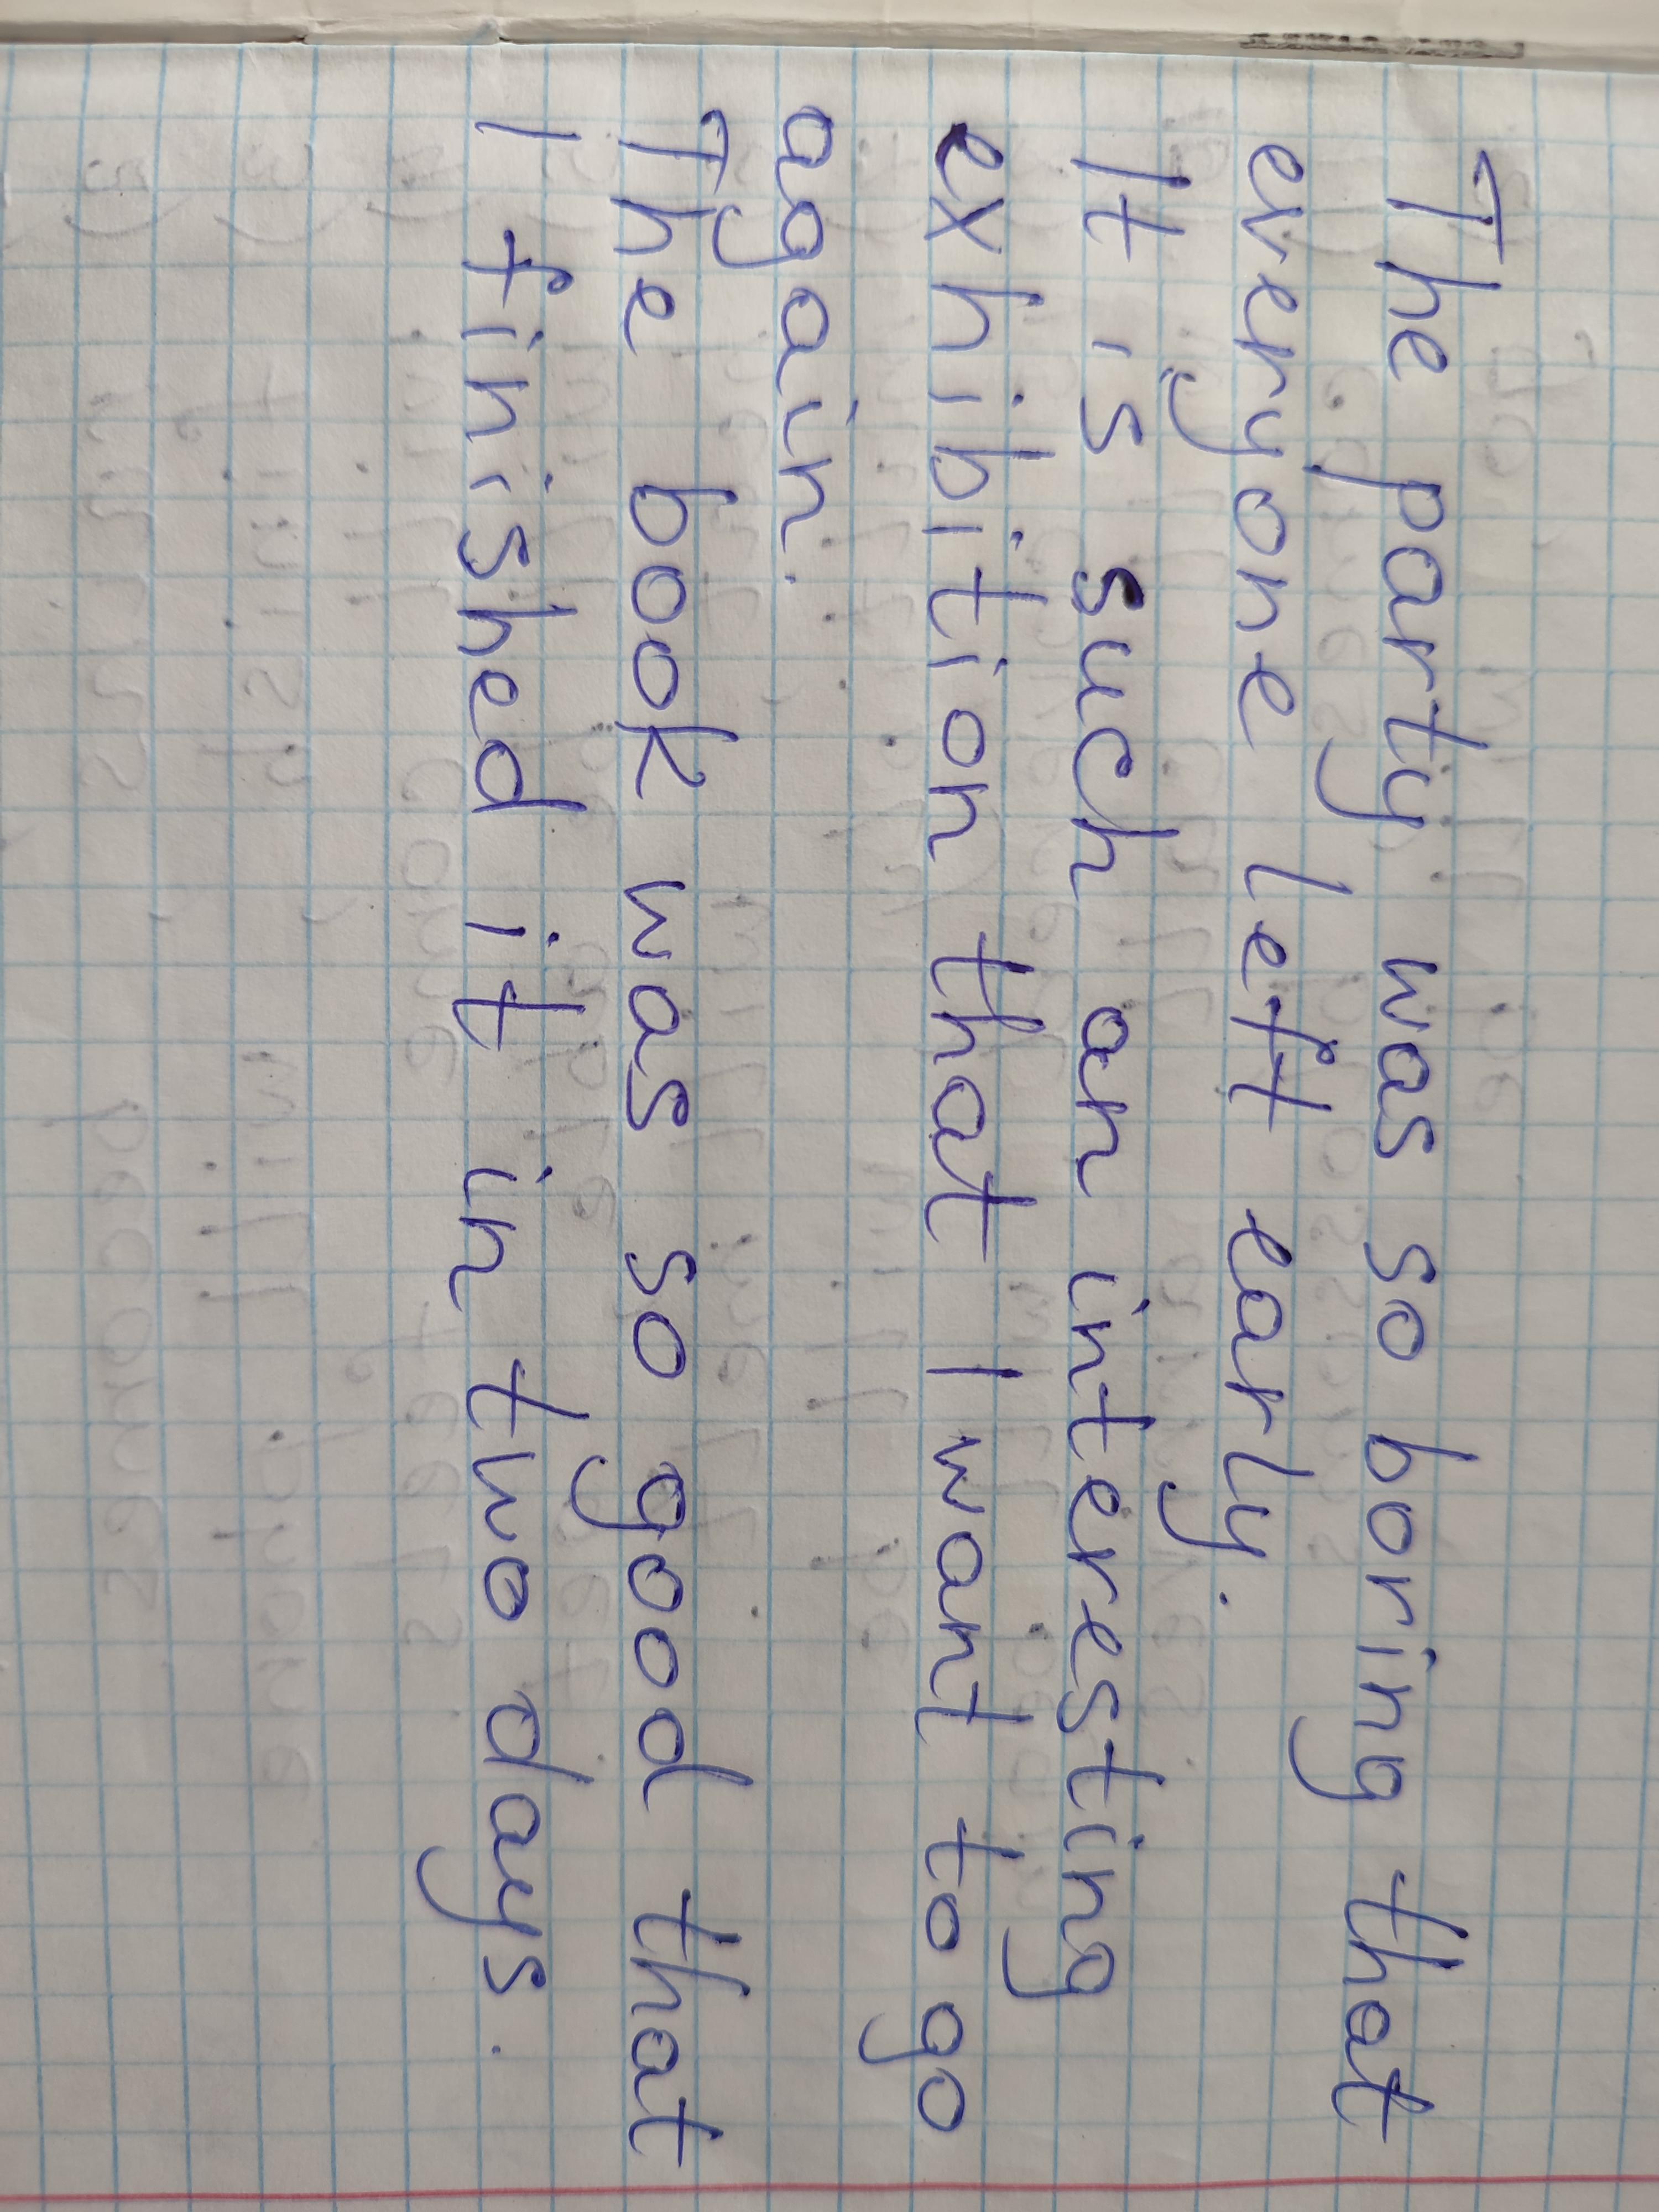 The party was so boring that
everyone left early.
It is such an interesting
exhibition that I want to go
again.
The book was so good that
I finished it in two days.